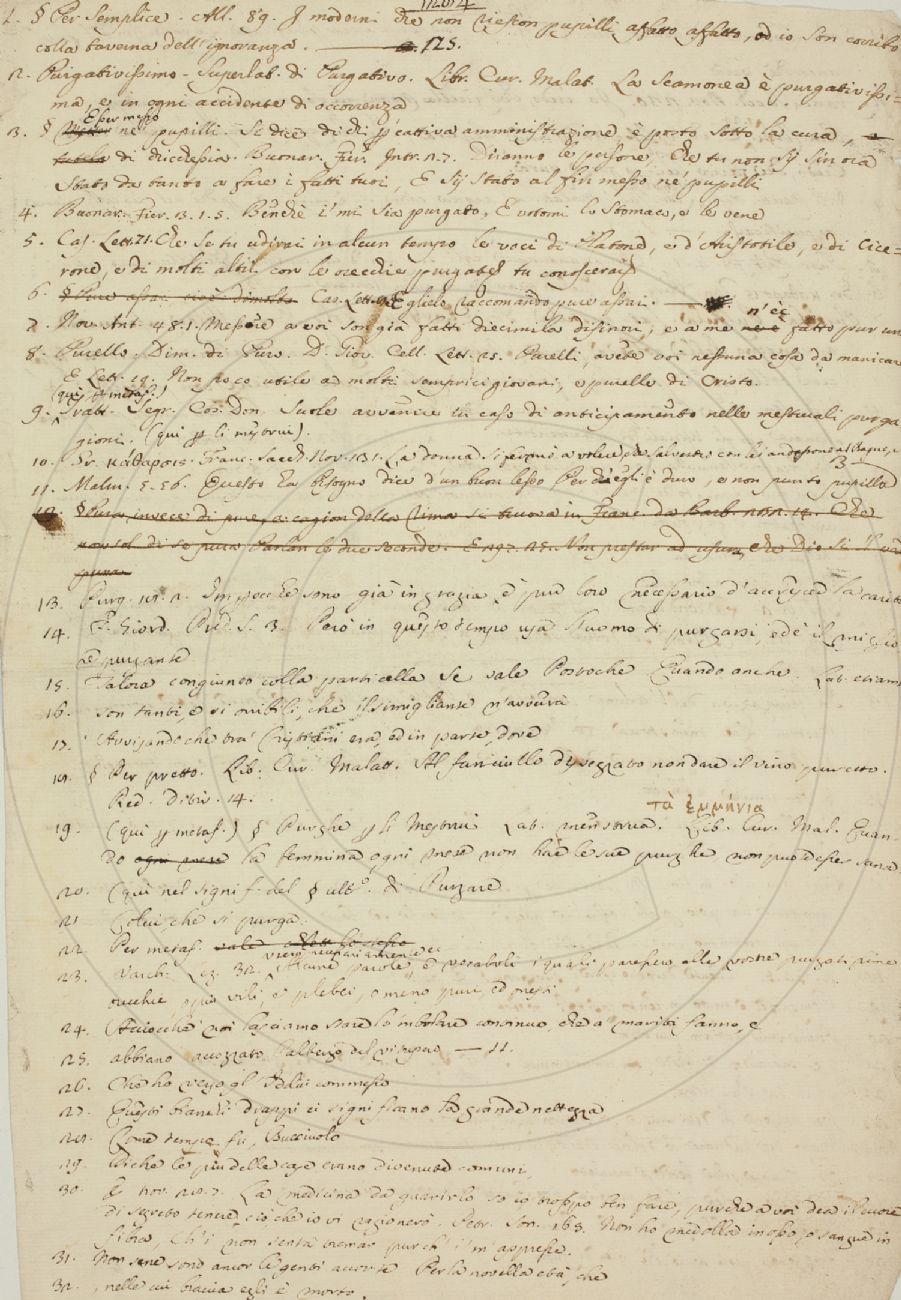 1204
1. § Per semplice. All. 89. I moderni che non rieston pupilli affatto affatto, ed io son corribo
colla taverna dell'ignoranza. — 125.
2. Purgativissimo. Superlat. di Purgativo. Libr. Cur. Malat. La Scamonea è purgativissi=
ma, e in ogni accidente di occorrenza
E per messo
3. § ne' pupilli. Si dice di chi p cattiva amministrazione è posto sotto la cura, e
tutela di chicchessia. Buonar. Fier. Intr. 2.7. Diranno le persone, Che tu non sij sin ora
stato da tanto a fare i fatti tuoi, E sij stato al fin messo ne' pupilli
4. Buonar. Fier. 3.1.5. Benchè i' mi sia purgato, E votomi lo stomaco, e le vene
5. Cas. Lett. 71. Che se tu udirai in alcun tempo le voci di Platone, e d'Aristotile, e di Cice=
rone, e di molti altri con le orecchie purgate, tu conoscerai
6. § Pure assai cioè dimolto Cas. Lett. Egliele raccomando pure assai. —
7. Nov. Ant. 48.1. Messere a voi son già fatti diecimila disinori, e a me n'è fatto pur un
8. Purello. Dim. di Puro. D. Giov. Cell. Lett. 25. Purelli, avete voi nessuna cosa da manicare
E Lett. 19. Non poco utile ad molti semprici giovani, e purelle di Cristo.
(qui p metaf.)
9. Tratt. Segr. Cos. Don. Suole avvenire in caso di anticipamento nelle mestruali purga
gioni. (qui p li mestrui).
10. Fr. Franc. Sacch. Nov. 131. La donna si fermò a volere che Salvestro con lei andasse
11. Malm. 5.56. Questo ha bisogno dice d'un buon lesso Perch'egli è duro, e non punto pupillo
12. § Pura invece di pure, a cagion della rima si truova in Franc. da Barb. Che
non sol di se pura Parlan le due seconde. E Non prestar ad usura, Che Dio si il
pura
13. Purg. Impocchè sono già in grazia, è pur loro necessario d'accrescer la carità
14. F. Giord. Pred. S. 3. Però in questo tempo usa l'uomo di purgarsi, ed è il miglio
re purgante
15. Talora congiunto colla particella Se vale Postochè Quando anche. Lab. etiam
16. son tanti, e sì orribili, che il simigliante n'avverrà
17. Avvisando che tra' Cristiani era, ed in parte, dove
18. § Per pretto. Lib. Cur. Malatt. Al fanciullo disvezzato non dare il vino puretto.
Red. Ditir. 14.
τὰ ἐμμήνια
19. (qui p metaf.) § Purghe p li Mestrui Lat. menstrua. Lib. Cur. Mal. Quan-
do ogni mese la femmina ogni mese non hae le sue purghe non puote esser sana
20. (qui nel signif. del § ult.º di Purgare
21 Colui, che si purga.
22. Per metaf.
23. Varch. Lez. 32. Alcune parole, e vocaboli i quali paressero alle vostre purgatissime
orecchie o più vili, e plebei, o meno puri ed onesti
24. Acciocchè noi lasciamo stare lo 'mbolare continuo, che a' mariti fanno, e
25. abbiano avvezzato l'albergo del vitupero — 11.
26. Che ho verso gl' Iddii commesso
27. Questi bianchi drappi ci significano la grande nettezza
28. Come tempo fu, Bucciuolo
29. Siche le più delle case erano divenute comuni
30. E nov. 28.7. La medicina da guarirlo so io troppo ben fare, purchè a voi dea il cuore
di segreto tenere, ciò che io vi ragionerò. Petr. Son. 163. Non ho medolla in osso, o sangue in
fibra, Ch'i' non senta tremar pur ch'i' m'appresse.
31. Non sene sono ancor le genti accorte Per la novella età, che
32. , nelle cui braccia egli è morto.